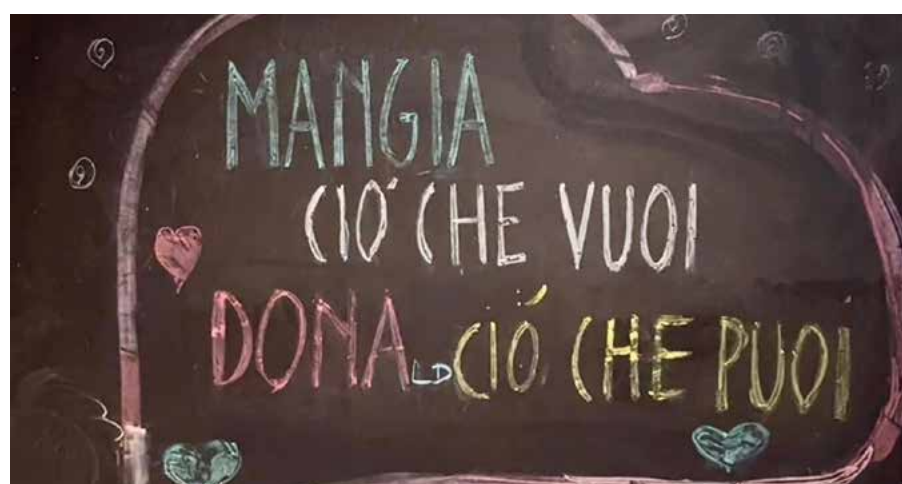 MANGIA
CIÓ CHE VUOI
DONA LD CIÓ CHE PUOI